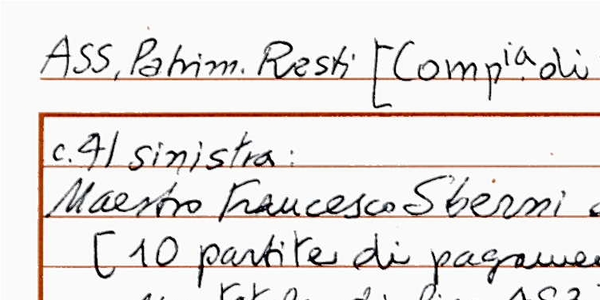 ASS, Patrim. Resti [Comp.ia di
c. 41 sinistra:
Maestro Francesco Sberni
[10 partite di pagame